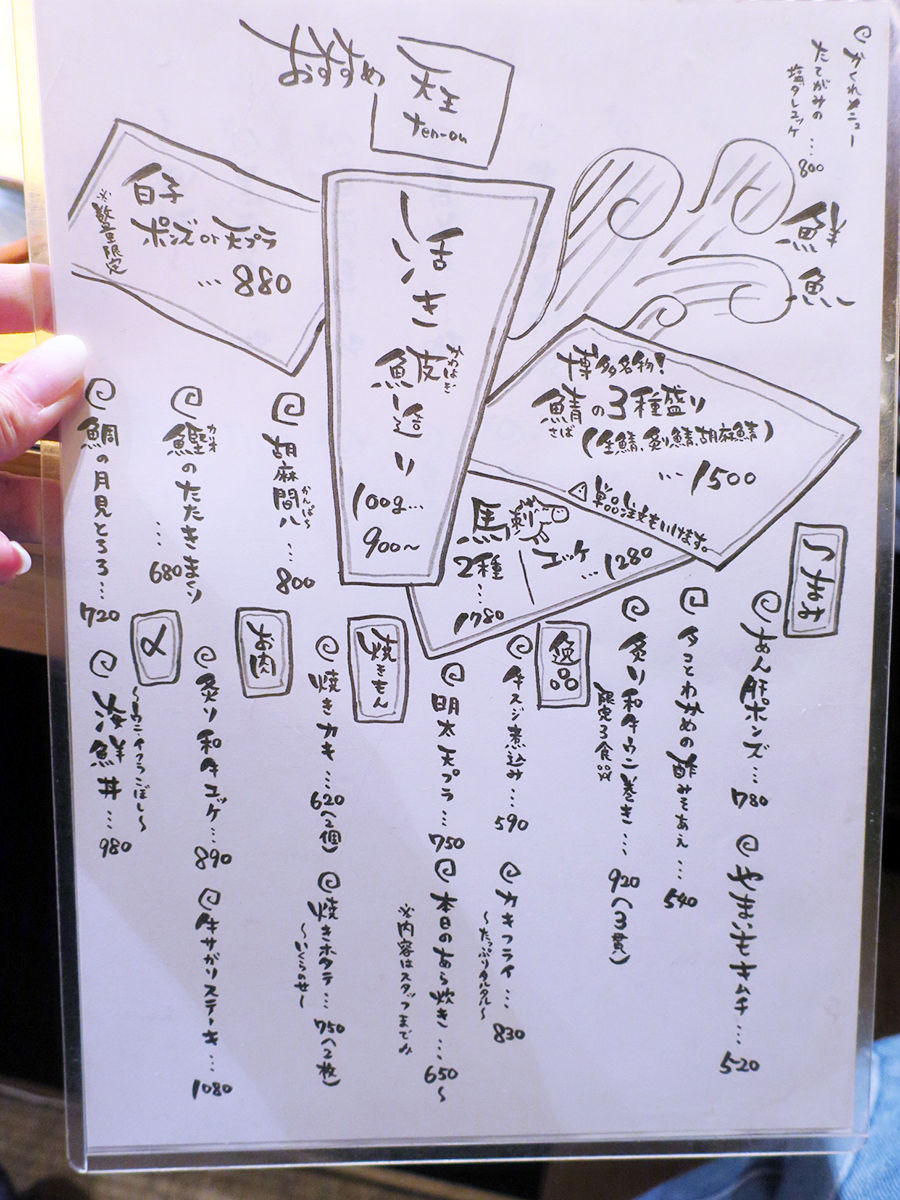 かくれメニュー
たてがみの
塩タレユッケ
…800
おすすめ
天王
ten-ou
鮮魚
博多名物!
鯖の3種盛り
さば
(生鯖、炙り鯖、胡麻鯖)
…1500
単品注文もいけます。
活き
鮍造り
かわはぎ
100g…
900〜
白子
ポンズor天プラ
…880
※数量限定
馬刺
2種
…
1780
ユッケ
…1280
胡麻間八…800
かんぱち
鰹のたたきまぐり
カツオ
…680
鯛の月見とろろ…720
つまみ
あん肝ポンズ…780
やまいもキムチ…520
タコとわかめの酢みそあえ…540
炙り和牛ウニ巻き…920(3貫)
限定3食
逸品
牛スジ煮込み…590
カキフライ…830
〜たっぷりタルタル〜
明太天プラ…750
本日のあら炊き…650〜
※内容はスタッフまで♪
焼きもん
焼きカキ…620(2個)
焼きホタテ…750(2枚)
〜いくらのせ〜
お肉
炙り和牛ユッケ…890
牛サガリステーキ…1080
〆
海鮮丼…980
〜ウニイクラこぼし〜